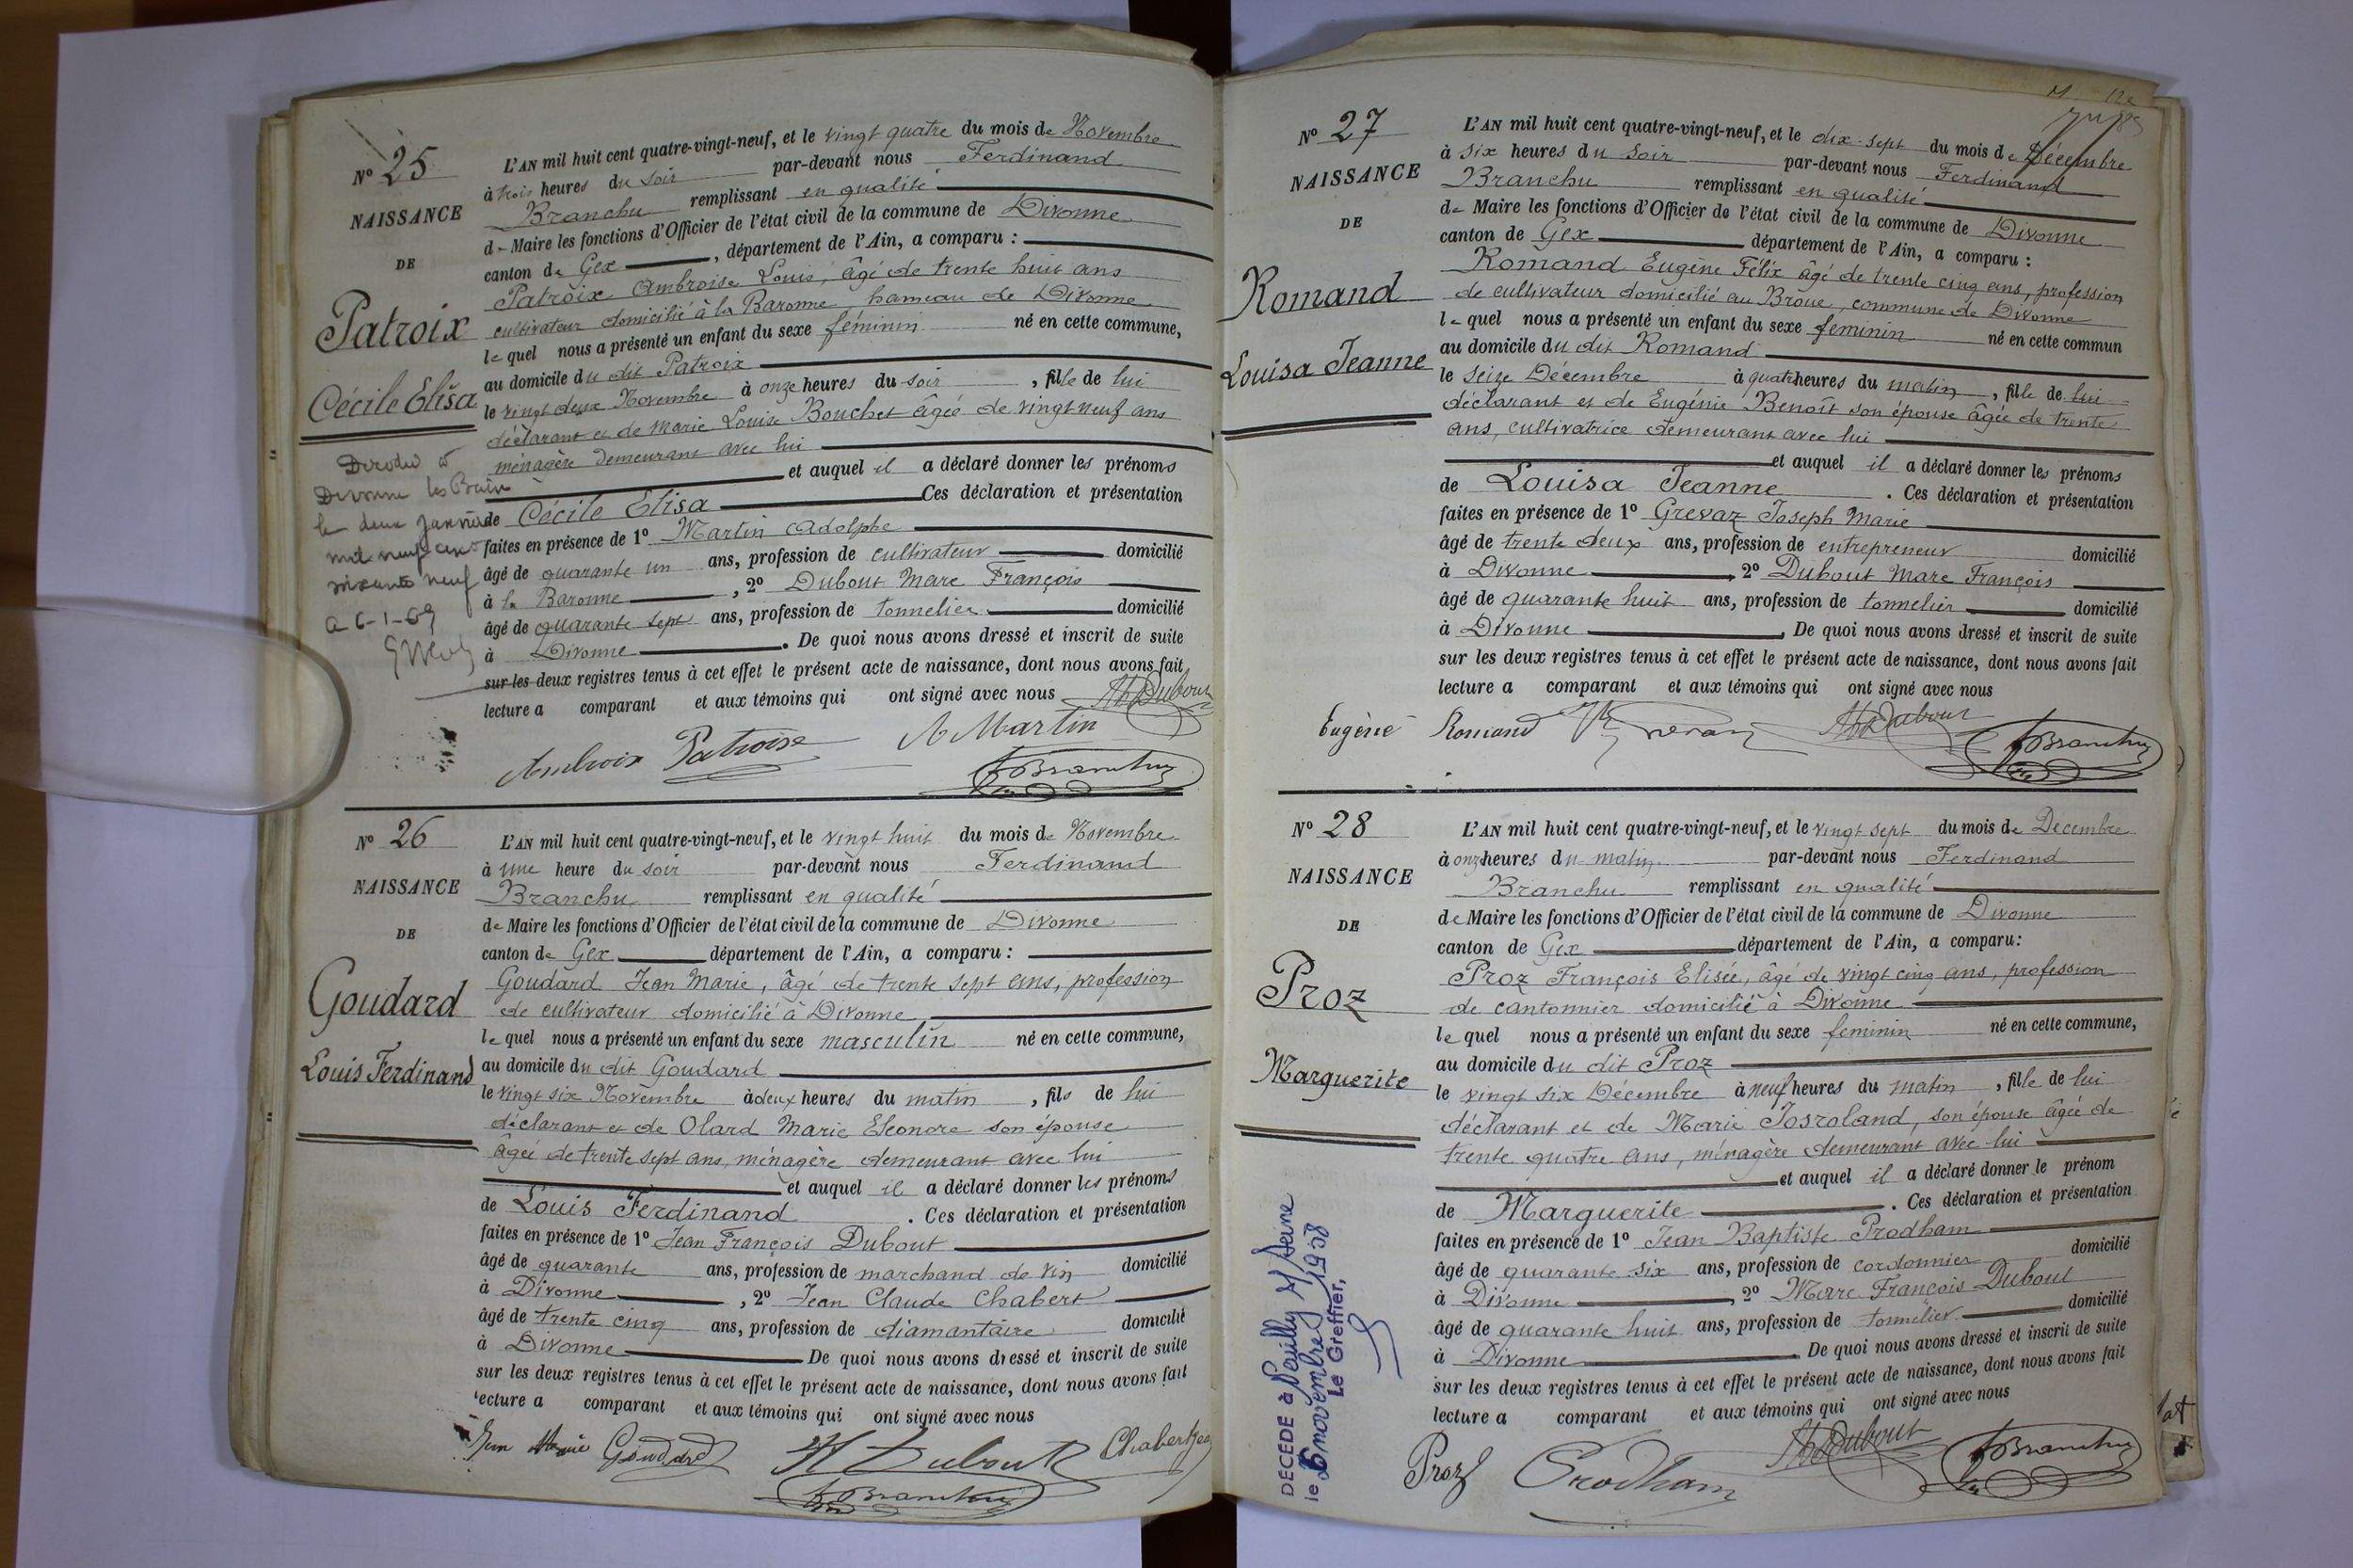 N° 25
NAISSANCE
DE
Patroix
Cécile Elisa
Décédée à
Divonne les Bains
le deux Janvier
mil neuf cent
soixante neuf
6-1-69
L'AN mil huit cent quatre-vingt-neuf, et le vingt quatre du mois de Novembre
à trois heures du soir par-devant nous Ferdinand
Branchu remplissant en qualité
de Maire les fonctions d'Officier de l'état civil de la commune de Divonne
canton de Gex, département de l'Ain, a comparu :
Patroix Ambroise Louis, âgé de trente huit ans
cultivateur domicilié à la Baronne, hameau de Divonne
lequel nous a présenté un enfant du sexe féminin né en cette commune,
au domicile du dit Patroix
le vingt deux Novembre à onze heures du soir, fille de lui
déclarant et de Marie Louise Bouchet âgée de vingt neuf ans
ménagère demeurant avec lui
et auquel il a déclaré donner les prénoms
de Cécile Elisa Ces déclaration et présentation
faites en présence de 1° Martin Adolphe
âgé de quarante un ans, profession de cultivateur domicilié
à la Baronne, 2° Dubout Marc François
âgé de quarante sept ans, profession de tonnelier domicilié
à Divonne. De quoi nous avons dressé et inscrit de suite
sur les deux registres tenus à cet effet le présent acte de naissance, dont nous avons fait
lecture a comparant et aux témoins qui ont signé avec nous Dubout
Ambroix Patroix A Martin
Branchu
N° 26
NAISSANCE
DE
Goudard
Louis Ferdinand
L'AN mil huit cent quatre-vingt-neuf, et le vingt huit du mois de Novembre
à une heure du soir par-devant nous Ferdinand
Branchu remplissant en qualité
de Maire les fonctions d'Officier de l'état civil de la commune de Divonne
canton de Gex département de l'Ain, a comparu :
Goudard Jean Marie, âgé de trente sept ans, profession
de cultivateur domicilié à Divonne
lequel nous a présenté un enfant du sexe masculin né en cette commune,
au domicile du dit Goudard
le vingt six Novembre à deux heures du matin, fils de lui
déclarant et de Olard Marie Eleonore son épouse
âgée de trente sept ans, ménagère demeurant avec lui
et auquel il a déclaré donner les prénoms
de Louis Ferdinand. Ces déclaration et présentation
faites en présence de 1° Jean François Dubout
âgé de quarante ans, profession de marchand de vin domicilié
à Divonne, 2° Jean Claude Chabert
âgé de trente cinq ans, profession de diamantaire domicilié
à Divonne De quoi nous avons dressé et inscrit de suite
sur les deux registres tenus à cet effet le présent acte de naissance, dont nous avons fait
lecture a comparant et aux témoins qui ont signé avec nous
Jean Marie Goudard Dubout Chabert
Branchu
N° 27
NAISSANCE
DE
Romand
Louisa Jeanne
L'AN mil huit cent quatre-vingt-neuf, et le dix-sept du mois de Décembre
à six heures du soir par-devant nous Ferdinand
Branchu remplissant en qualité
de Maire les fonctions d'Officier de l'état civil de la commune de Divonne
canton de Gex département de l'Ain, a comparu :
Romand Eugène Félix âgé de trente cinq ans, profession
de cultivateur domicilié au Broue, commune de Divonne
lequel nous a présenté un enfant du sexe féminin né en cette commun
au domicile du dit Romand
le seize Décembre à quatre heures du matin, fille de lui
déclarant et de Eugénie Benoît son épouse âgée de trente
ans, cultivatrice demeurant avec lui
et auquel il a déclaré donner les prénoms
de Louisa Jeanne. Ces déclaration et présentation
faites en présence de 1° Grevaz Joseph Marie
âgé de trente deux ans, profession de entrepreneur domicilié
à Divonne, 2° Dubout Marc François
âgé de quarante huit ans, profession de tonnelier domicilié
à Divonne. De quoi nous avons dressé et inscrit de suite
sur les deux registres tenus à cet effet le présent acte de naissance, dont nous avons fait
lecture a comparant et aux témoins qui ont signé avec nous
Eugène Romand Grevaz Dubout
Branchu
N° 28
NAISSANCE
DE
Proz
Marguerite
DÉCÉDÉ à Neuilly s/ Seine
le 6 novembre 1958
Le Greffier,
L'AN mil huit cent quatre-vingt-neuf, et le vingt sept du mois de Décembre
à onze heures du matin par-devant nous Ferdinand
Branchu remplissant en qualité
de Maire les fonctions d'Officier de l'état civil de la commune de Divonne
canton de Gex département de l'Ain, a comparu :
Proz François Elisée, âgé de vingt cinq ans, profession
de cantonnier domicilié à Divonne
lequel nous a présenté un enfant du sexe féminin né en cette commune,
au domicile du dit Proz
le vingt six Décembre à neuf heures du matin, fille de lui
déclarant et de Marie Josroland, son épouse âgée de
trente quatre ans, ménagère demeurant avec lui
et auquel il a déclaré donner le prénom
de Marguerite. Ces déclaration et présentation
faites en présence de 1° Jean Baptiste Prodham
âgé de quarante six ans, profession de cordonnier domicilié
à Divonne, 2° Marc François Dubout
âgé de quarante huit ans, profession de tonnelier domicilié
à Divonne De quoi nous avons dressé et inscrit de suite
sur les deux registres tenus à cet effet le présent acte de naissance, dont nous avons fait
lecture a comparant et aux témoins qui ont signé avec nous
Proz Prodham Dubout Branchu